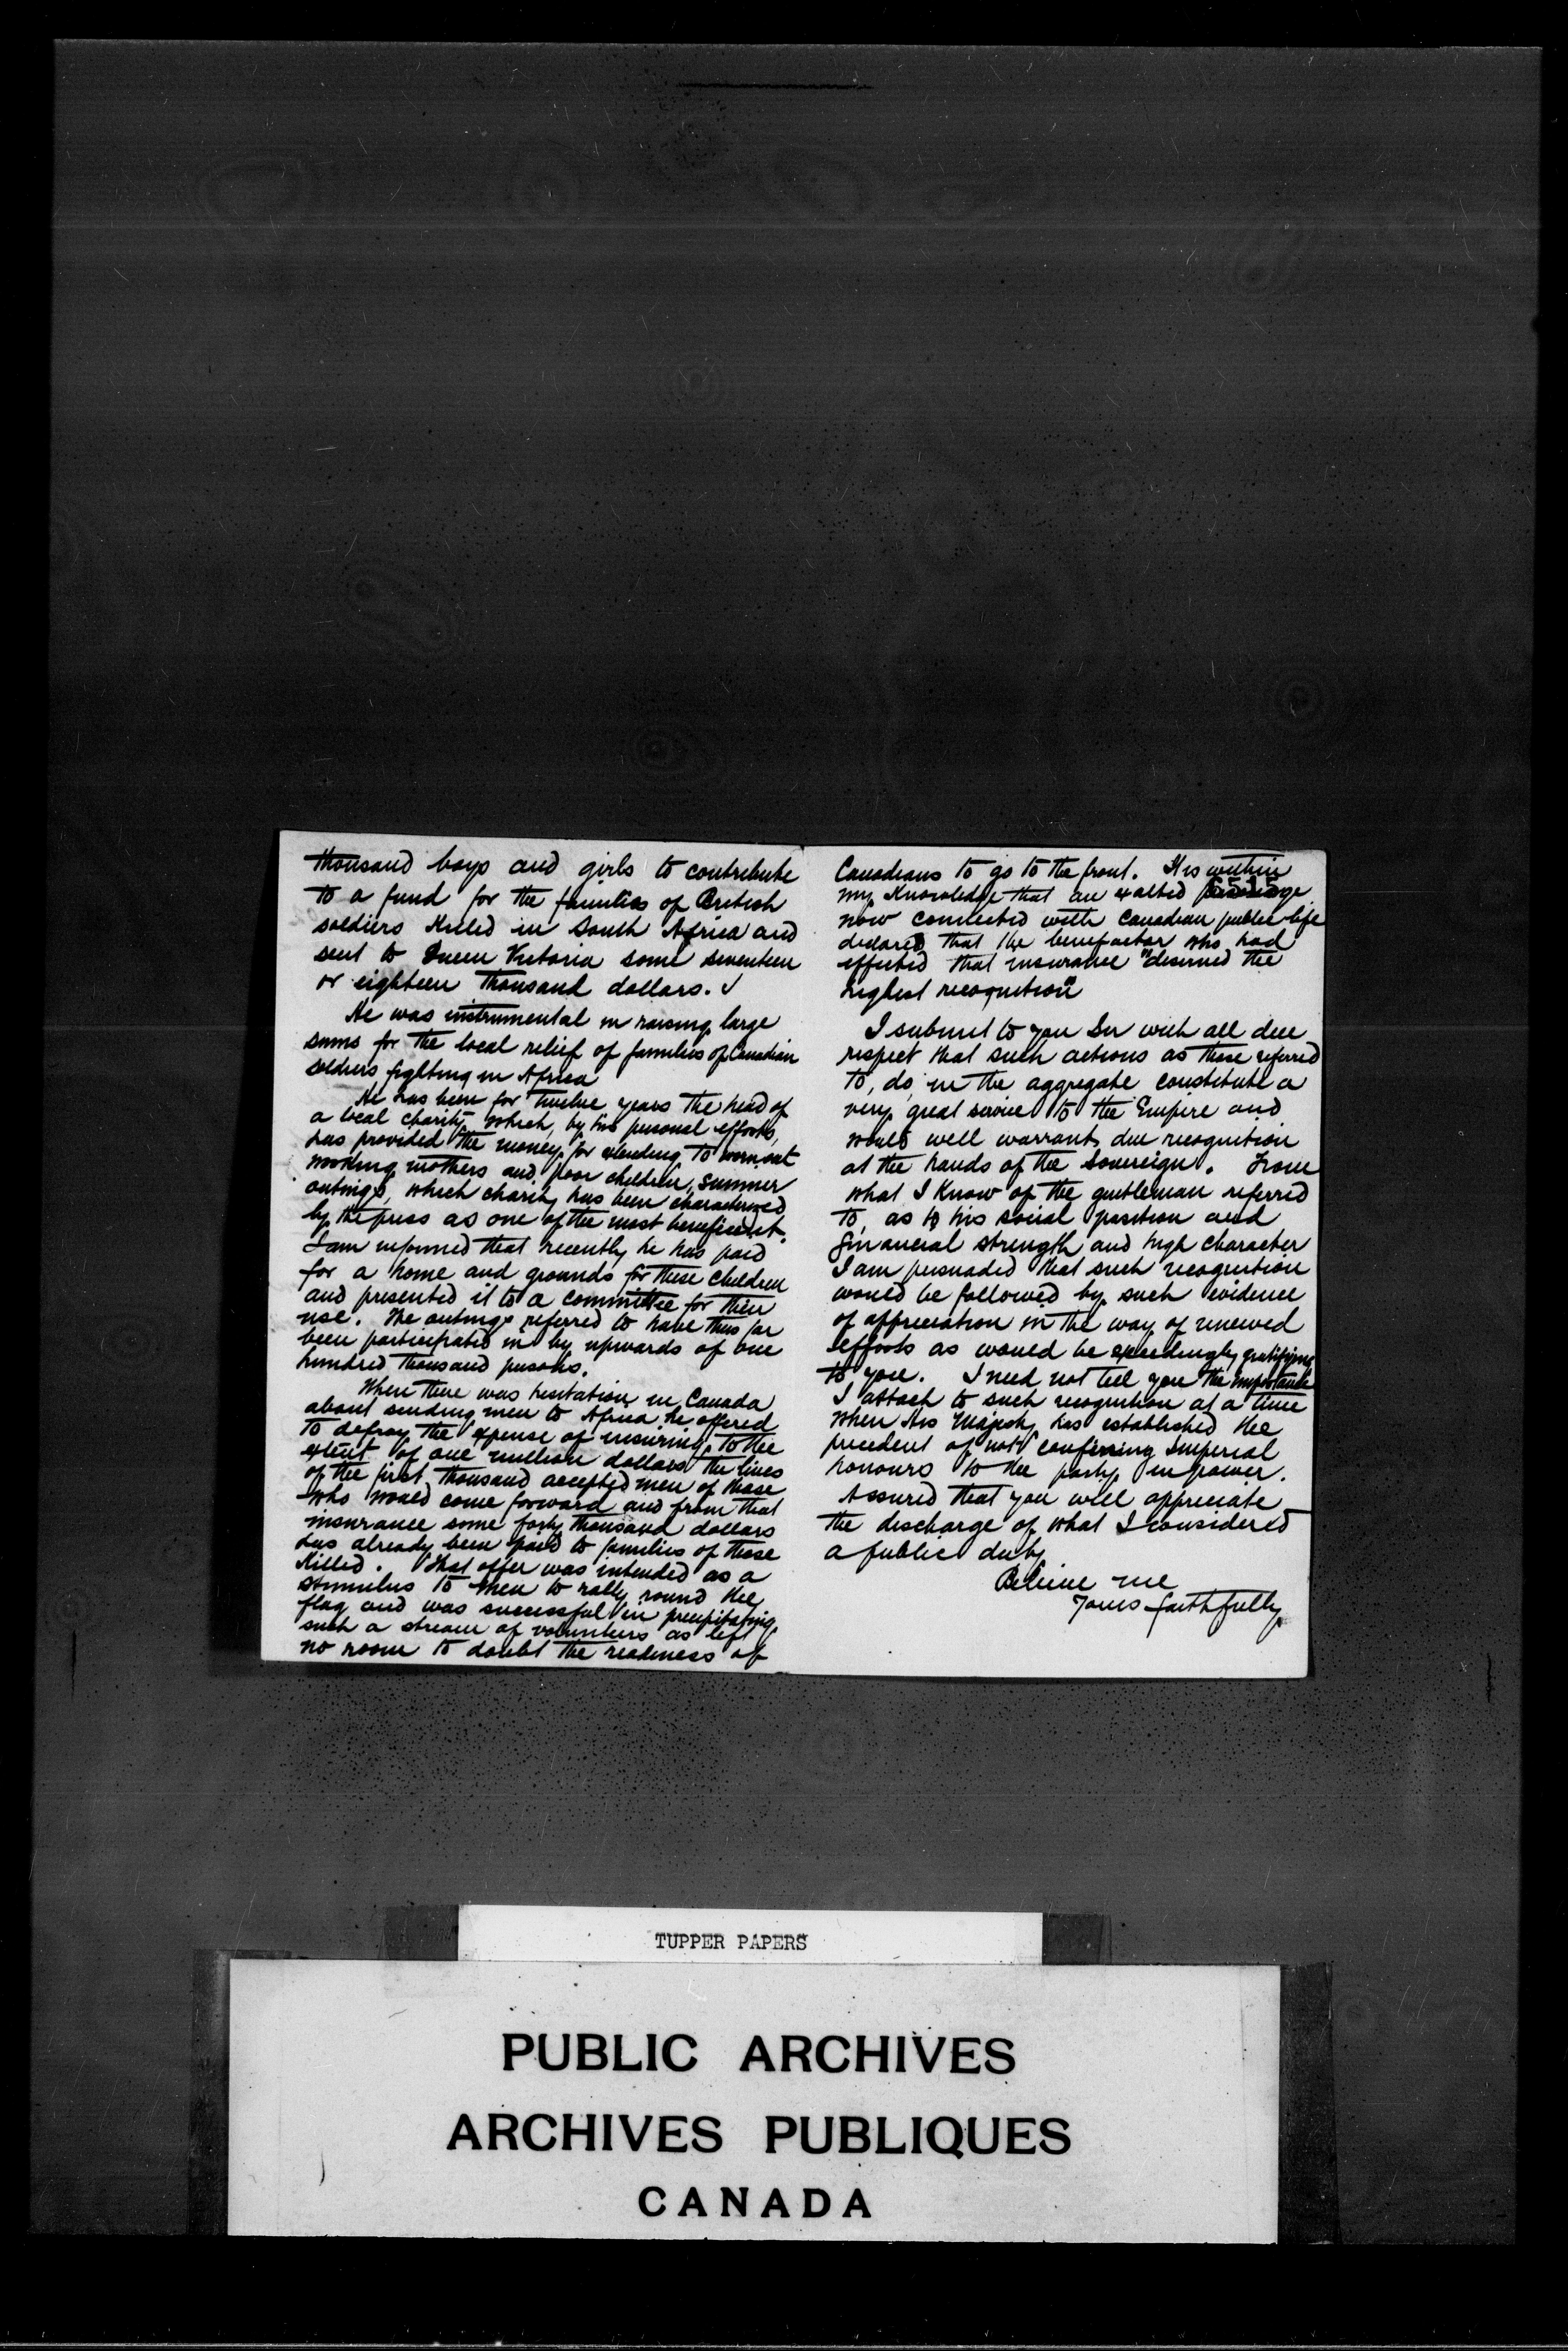 thousand boys and girls to contribute
to a fund for the families of British
soldiers killed in South Africa and
sent to Queen Victoria some seventeen
or eighteen thousand dollars.
He was instrumental in raising large
sums for the local relief of families of Canadian
soldiers fighting in Africa
He has been for twelve years the head of
a local charity which, by his personal efforts,
has provided the money for extending to wornout
working mothers and poor children, summer
outings, which charity has been characterized
by the press as one of the most beneficent.
I am informed that recently he has paid
for a home and grounds for these children
and presented it to a committee for their
use. The outings referred to have thus far
been participated in by upwards of one
hundred thousand persons.
When there was hesitation in Canada
about sending men to Africa he offered
to defray the expense of insuring, to the
extent of one million dollars the lives
of the first thousand accepted men of those
who would come forward and from that
insurance some forty thousand dollars
has already been paid to families of those
killed. That offer was intended as a
stimulus to men to rally round the
flag and was successful in precipitating
such a stream of volunteers as left
no room to doubt the readiness of
Canadians to go to the front. It is within
my knowledge that an exalted personage
now connected with Canadian public life
declared that the benefactor who had
effected that insurance "deserved the
highest recognition"
I submit to you Sir with all due
respect that such actions as those referred
to, do, in the aggregate constitute a
very great service to the Empire and
would well warrant due recognition
at the hands of the Sovereign. From
what I know of the gentleman referred
to, as to his social position and
financial strength and high character
I am persuaded that such recognition
would be followed by such evidence
of appreciation in the way of renewed
efforts as would be exceedingly gratifying
to you. I need not tell you the importance
I attach to such recognition at a time
when His Majesty has established the
precedent of not confining Imperial
honours to the party in power.
Assured that you will appreciate
the discharge of what I considered
a public duty
Believe me
Yours faithfully
TUPPER PAPERS
PUBLIC ARCHIVES
ARCHIVES PUBLIQUES
CANADA